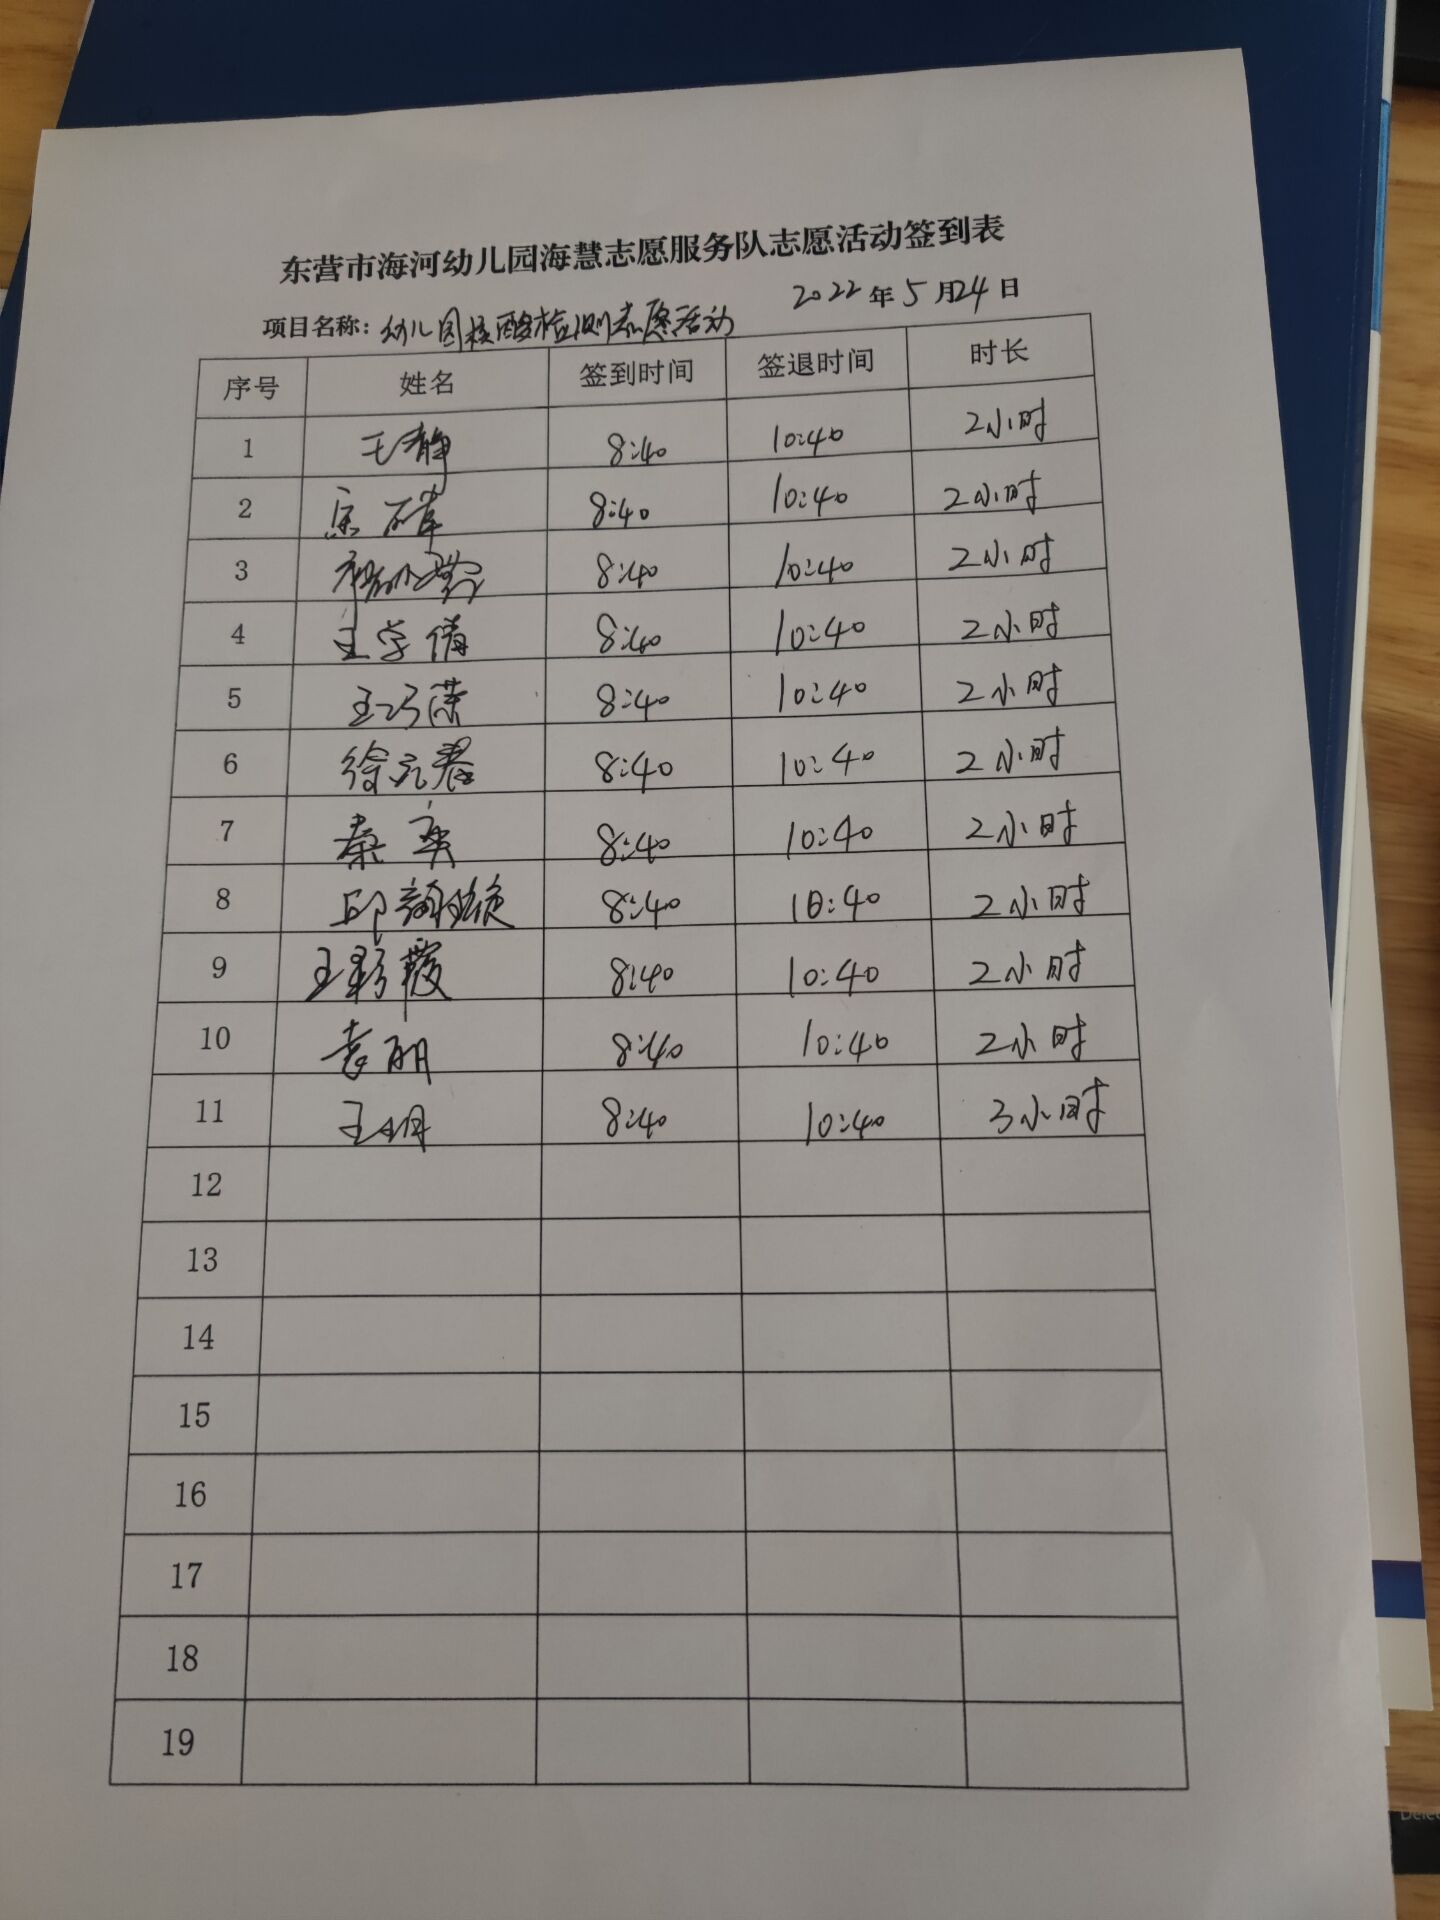 东营市海河幼儿园海慧志愿服务队志愿活动签到表
项目名称：幼儿园核酸检测志愿活动 2022年5月24日
序号 姓名 签到时间 签退时间 时长
1 王静 8:40 10:40 2小时
2 8:40 10:40 2小时
3 8:40 10:40 2小时
4 王学倩 8:40 10:40 2小时
5 王巧萍 8:40 10:40 2小时
6 徐元君 8:40 10:40 2小时
7 秦 8:40 10:40 2小时
8 邱 8:40 10:40 2小时
9 王彩霞 8:40 10:40 2小时
10 袁丽 8:40 10:40 2小时
11 王 8:40 10:40 3小时
12
13
14
15
16
17
18
19